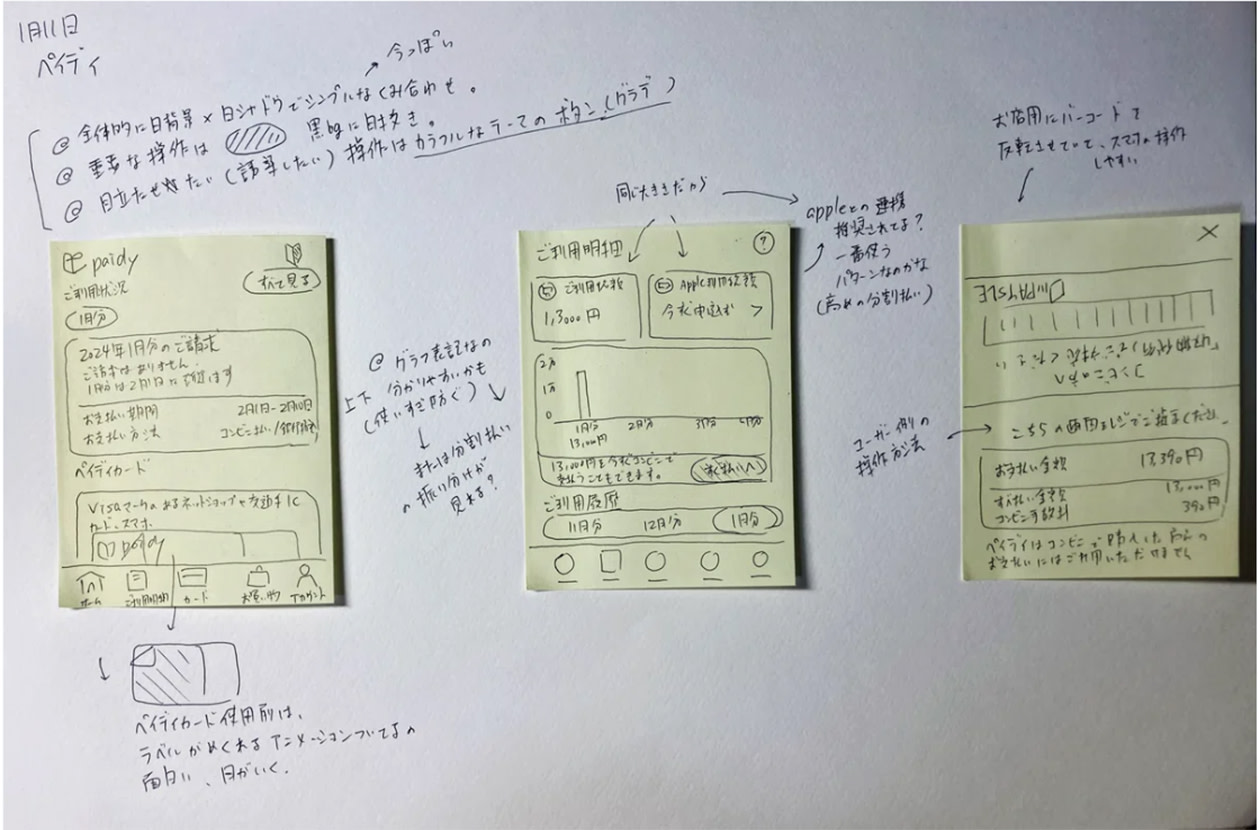 1月11日
ペイディ
今っぽい
@ 全体的に白背景×白シャドウでシンプルなくみ合わせ。
@ 重要な操作は 黒bgに白抜き。
@ 目立たせたい(誘導したい)操作はカラフルなテーマのボタン(グラデ)
paidy
ご利用状況
すべて見る
1月分
2024年1月分のご請求
ご請求はありません。
1月分は2月1日に確定します
お支払い期間 2月1日-2月10日
お支払い方法 コンビニ払い/銀行振込
ペイディカード
Visaマークのあるネットショップや交通系IC
カード、スマホ
paidy
ホーム ご利用明細 カード お買い物 アカウント
ペイディカード使用前は、
ラベルがめくれるアニメーションついてるの
面白い、目がいく。
@ グラフ表記なの
分かりやすいかも
(使いすぎ防ぐ)
上下
または分割払い
の振り分けが
見れる?
同じ大きさだから
appleとの連携
推奨されてる?
一番使う
パターンなのかな
(高めの分割払い)
ご利用明細
?
ご利用総額
1,3000円
Apple専用
今すぐ申込む >
2万
1万
0
1月分 2月分 3月分 4月分
13,000円
13,000円を今すぐコンビニで
支払うこともできます。
すぐ払い へ
ご利用履歴
11月分 12月分 1月分
お店用にバーコードで
反転させていて、スマホの操作
しやすい
×
PAYSLE
コンビニの方へ
ユーザー側の
操作方法
こちらの画面をレジでご提示ください
お支払い金額 13,390円
お支払い金額 13,000円
コンビニ手数料 390円
ペイディはコンビニで購入した商品の
お支払いにはご利用いただけません